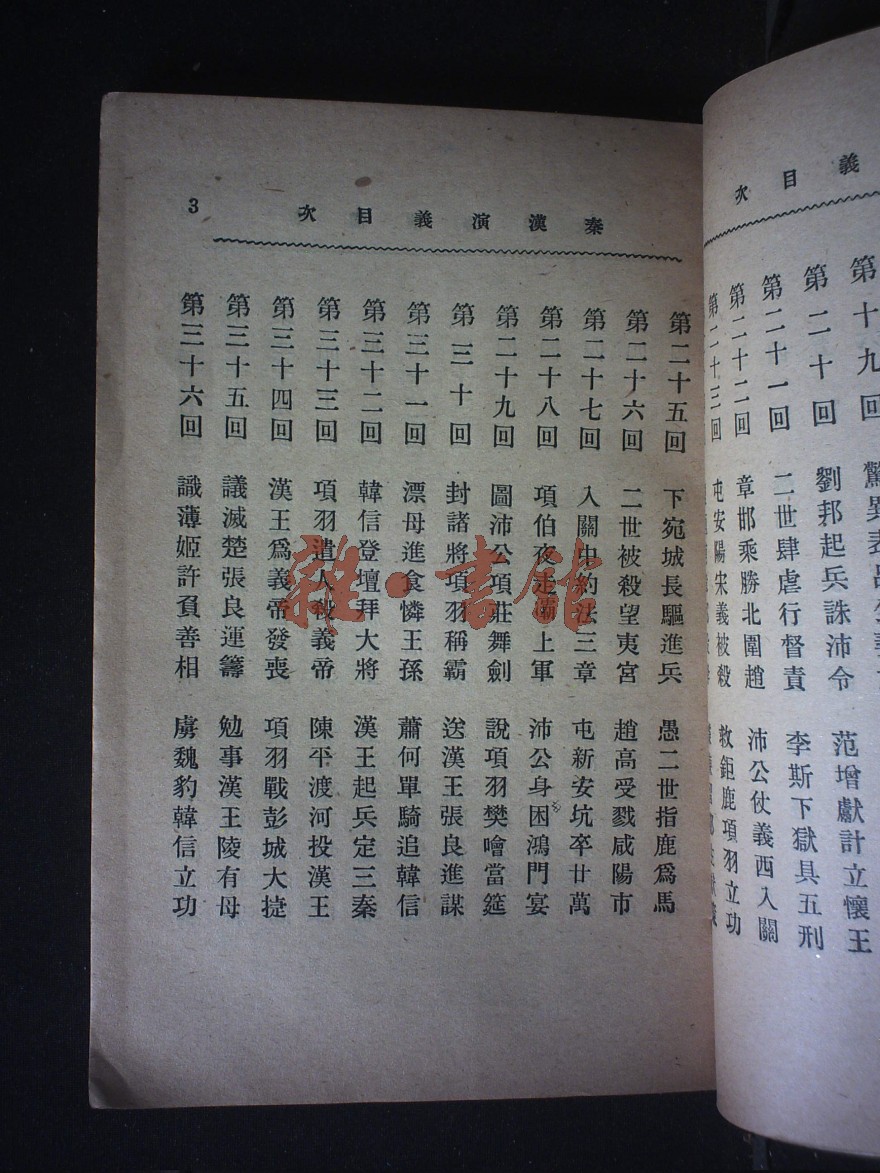 義目次
第十九回
第二十回 劉邦起兵誅沛令 范增獻計立懷王
第二十一回 二世肆虐行督責 李斯下獄具五刑
第二十二回 章邯乘勝北圍趙 沛公仗義西入關
第二十三回 屯安陽宋義被殺 救鉅鹿項羽立功
秦漢演義目次
3
第二十五回 下宛城長驅進兵 愚二世指鹿爲馬
第二十六回 二世被殺望夷宮 趙高受戮咸陽市
第二十七回 入關中約法三章 屯新安坑卒廿萬
第二十八回 項伯夜走灞上軍 沛公身困鴻門宴
第二十九回 圖沛公項莊舞劍 說項羽樊噲當筵
第三十回 封諸將項羽稱霸 送漢王張良進謀
第三十一回 漂母進食憐王孫 蕭何單騎追韓信
第三十二回 韓信登壇拜大將 漢王起兵定三秦
第三十三回 項羽遣人殺義帝 陳平渡河投漢王
第三十四回 漢王爲義帝發喪 項羽戰彭城大捷
第三十五回 議滅楚張良運籌 勉事漢王陵有母
第三十六回 識薄姬許負善相 虜魏豹韓信立功
雜·書館